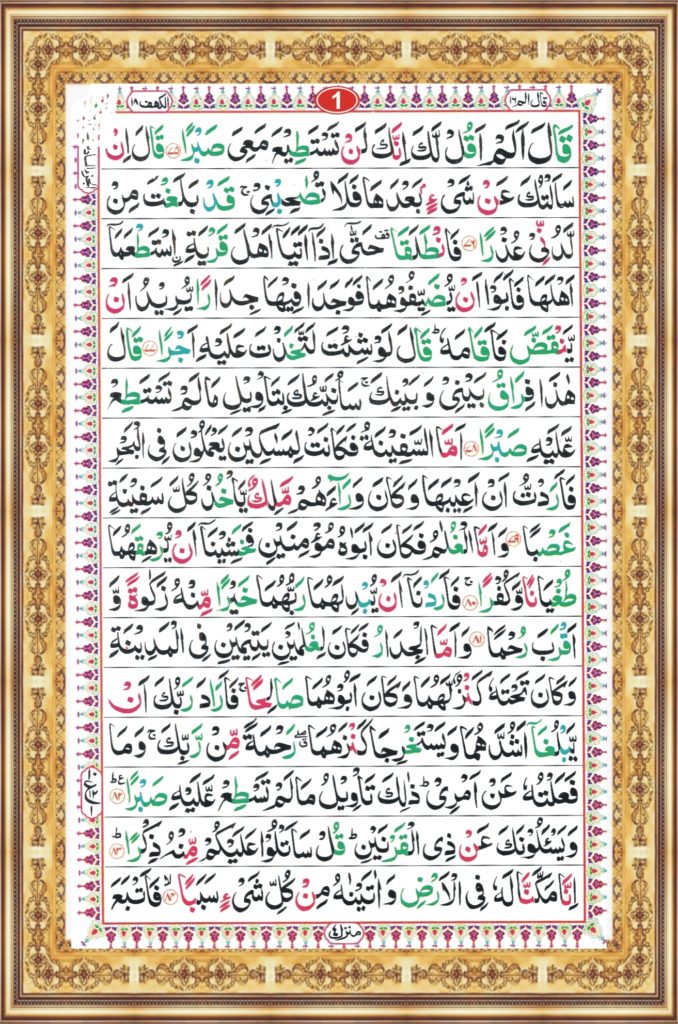 قال الم ١٦
1
الكهف ١٨
قَالَ اَلَمْ اَقُلْ لَّكَ اِنَّكَ لَنْ تَسْتَطِيْعَ مَعِىَ صَبْرًا ﴿۷۵﴾ قَالَ اِنْ
سَاَلْتُكَ عَنْ شَىْءٍۭ بَعْدَهَا فَلَا تُصٰحِبْنِىْ ۚ قَدْ بَلَغْتَ مِنْ
لَّدُنِّىْ عُذْرًا ﴿۷۶﴾ فَانْطَلَقَا ٙ حَتّٰٓى اِذَاۤ اَتَيَاۤ اَهْلَ قَرْيَةِ ِۨاسْتَطْعَمَاۤ
اَهْلَهَا فَاَبَوْا اَنْ يُّضَيِّفُوْهُمَا فَوَجَدَا فِيْهَا جِدَارًا يُّرِيْدُ اَنْ
يَّنْقَضَّ فَاَقَامَهٗ ؕ قَالَ لَوْ شِئْتَ لَتَّخَذْتَ عَلَيْهِ اَجْرًا ﴿۷۷﴾ قَالَ
هٰذَا فِرَاقُ بَيْنِىْ وَ بَيْنِكَ ۚ سَاُنَبِّئُكَ بِتَاْوِيْلِ مَا لَمْ تَسْتَطِعْ
عَّلَيْهِ صَبْرًا ﴿۷۸﴾ اَمَّا السَّفِيْنَةُ فَكَانَتْ لِمَسٰكِيْنَ يَعْمَلُوْنَ فِى الْبَحْرِ
فَاَرَدْتُّ اَنْ اَعِيْبَهَا وَكَانَ وَرَآءَهُمْ مَّلِكٌ يَّاْخُذُ كُلَّ سَفِيْنَةٍ
غَصْبًا ﴿۷۹﴾ وَاَمَّا الْغُلٰمُ فَكَانَ اَبَوٰهُ مُؤْمِنَيْنِ فَخَشِيْنَاۤ اَنْ يُّرْهِقَهُمَا
طُغْيَانًا وَّكُفْرًا ﴿۸۰﴾ ۚ فَاَرَدْنَاۤ اَنْ يُّبْدِلَهُمَا رَبُّهُمَا خَيْرًا مِّنْهُ زَكٰوةً وَّ
اَقْرَبَ رُحْمًا ﴿۸۱﴾ وَاَمَّا الْجِدَارُ فَكَانَ لِغُلٰمَيْنِ يَتِيْمَيْنِ فِى الْمَدِيْنَةِ
وَكَانَ تَحْتَهٗ كَنْزٌ لَّهُمَا وَكَانَ اَبُوْهُمَا صَالِحًا ۚ فَاَرَادَ رَبُّكَ اَنْ
يَّبْلُغَاۤ اَشُدَّهُمَا وَيَسْتَخْرِجَا كَنْزَهُمَا ۖ رَحْمَةً مِّنْ رَّبِّكَ ۚ وَمَا
فَعَلْتُهٗ عَنْ اَمْرِىْ ؕ ذٰلِكَ تَاْوِيْلُ مَا لَمْ تَسْطِعْ عَّلَيْهِ صَبْرًا ﴿۸۲﴾
وَيَسْـَٔلُوْنَكَ عَنْ ذِى الْقَرْنَيْنِ ؕ قُلْ سَاَتْلُوْا عَلَيْكُمْ مِّنْهُ ذِكْرًا ﴿۸۳﴾ ؕ
اِنَّا مَكَّنَّا لَهٗ فِى الْاَرْضِ وَاٰتَيْنٰهُ مِنْ كُلِّ شَىْءٍ سَبَبًا ﴿۸۴﴾ ۙ فَاَتْبَعَ
منزل ٤